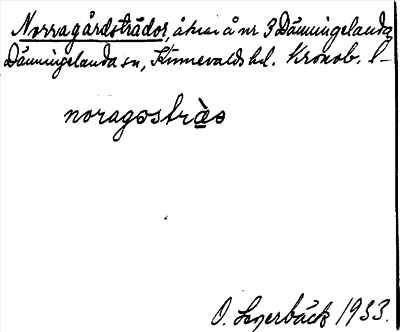 Norragårdsträdor, åkrar å nr 3 Dänningelanda,
Dänningelanda sn, Kinnevalds hd. Kronob. l-
noragostràs
O. Lagerbäck 1933.